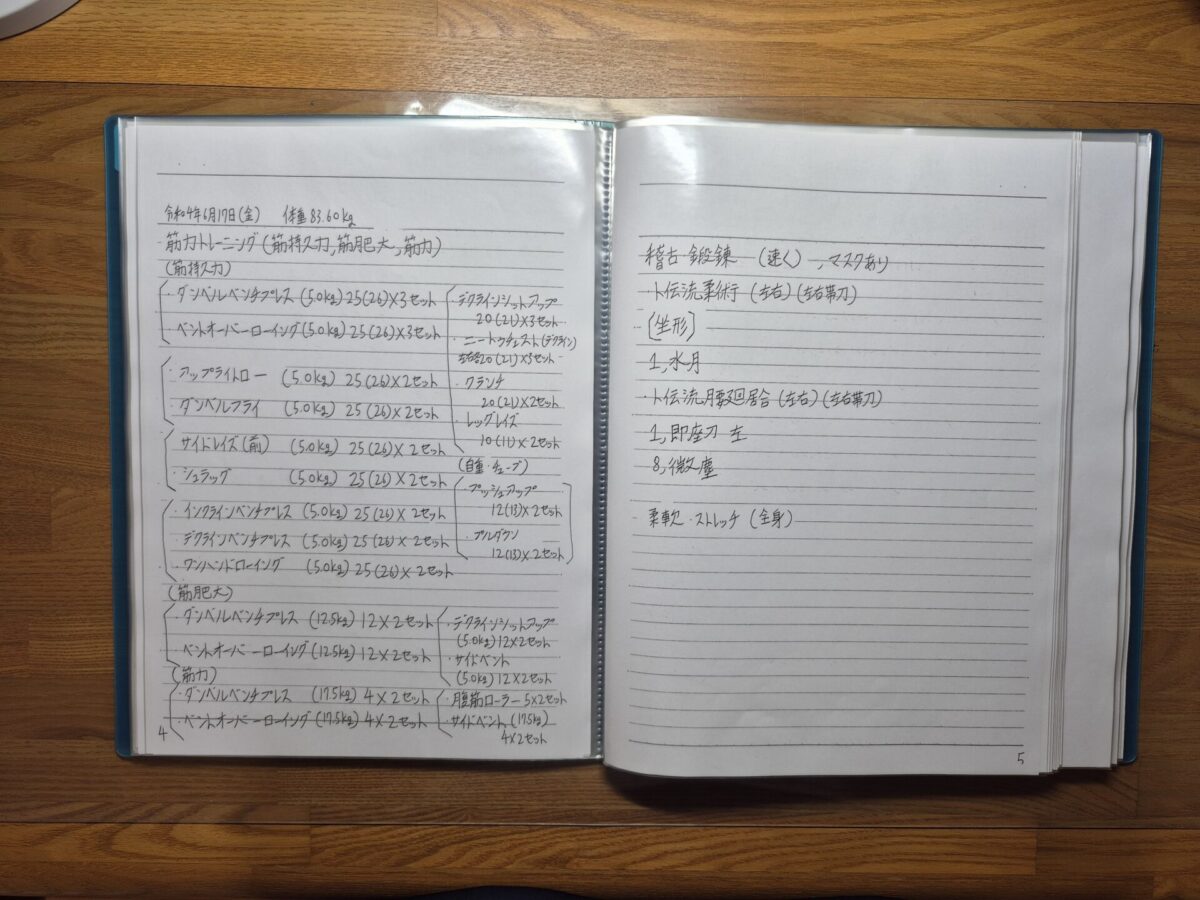 令和4年6月17日(金) 体重83.60kg
・筋力トレーニング(筋持久力,筋肥大,筋力)
(筋持久力)
・ダンベルベンチプレス (5.0kg) 25(26)×3セット
・ベントオーバーローイング(5.0kg) 25(26)×3セット
・アップライトロー (5.0kg) 25(26)×2セット
・ダンベルフライ (5.0kg) 25(26)×2セット
・サイドレイズ(前) (5.0kg) 25(26)×2セット
・シュラッグ (5.0kg) 25(26)×2セット
・インクラインベンチプレス (5.0kg) 25(26)×2セット
・デクラインベンチプレス (5.0kg) 25(26)×2セット
・ワンハンドローイング (5.0kg) 25(26)×2セット
(筋肥大)
・ダンベルベンチプレス (12.5kg) 12×2セット
・ベントオーバーローイング(12.5kg) 12×2セット
(筋力)
・ダンベルベンチプレス (17.5kg) 4×2セット
・ベントオーバーローイング(17.5kg) 4×2セット
4
・デクラインシットアップ
20(21)×3セット
・ニートゥチェスト(デクライン)
左右各20(21)×3セット
・クランチ
20(21)×2セット
・レッグレイズ
10(11)×2セット
(自重・チューブ)
・プッシュアップ
12(13)×2セット
・プルダウン
12(13)×2セット
・デクラインシットアップ
(5.0kg)12×2セット
・サイドベント
(5.0kg)12×2セット
・腹筋ローラー 5×2セット
・サイドベント(17.5kg)
4×2セット
稽古 鍛錬 (速く) ,マスクあり
・卜伝流柔術 (左右)(左右帯刀)
[坐形]
1,水月
・卜伝流腰廻居合(左右)(左右帯刀)
1,即座刀 左
8,微塵
柔軟・ストレッチ (全身)
5